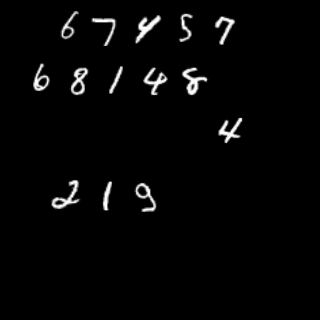 6 7 4 5 7
6 8 1 4 8
4
2 1 9